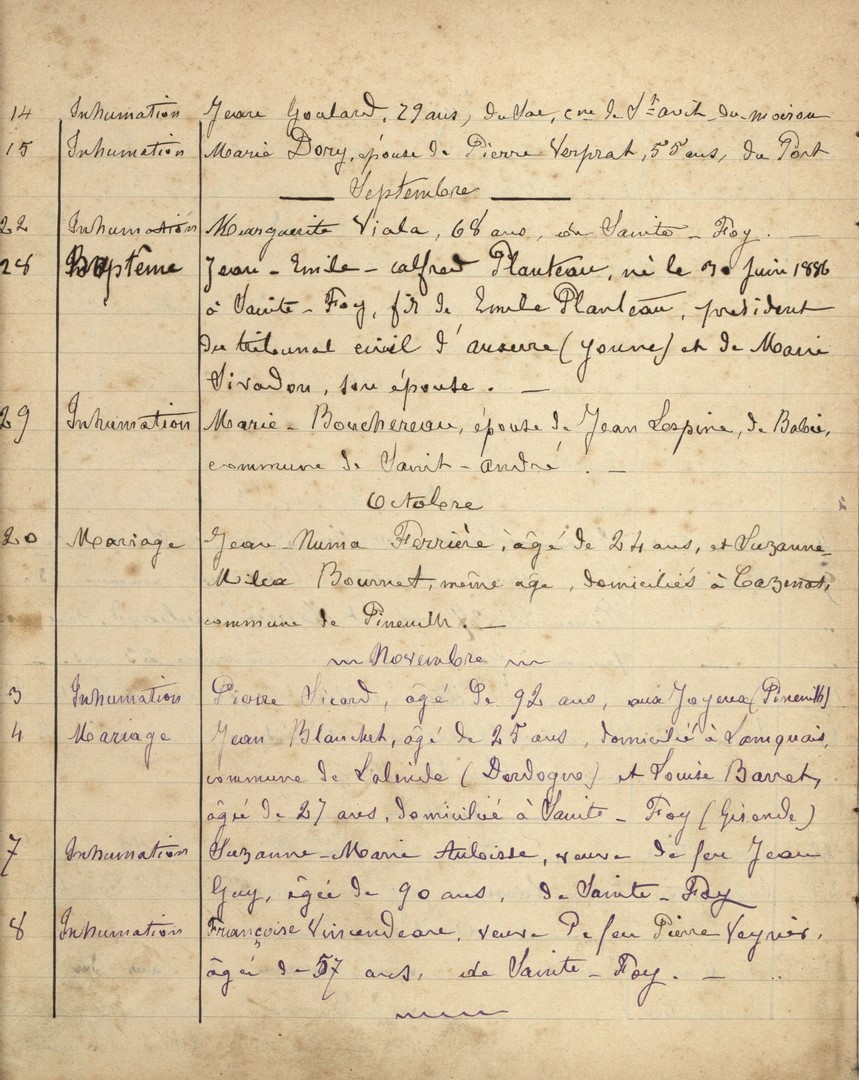 14 Inhumation Jeane Goulard, 29 ans, du Sac, cne de St avit-du-moiron
15 Inhumation Marie Dory, épouse de Pierre Verprat, 55 ans, du Port
Septembre
22 Inhumation Marguerite Viala, 68 ans, de Sainte-Foy. —
28 Baptême Jean-Emile-alfred Planteau, né le 30 Juin 1886
à Sainte-Foy, fils de Emile Planteau, président
du tribunal civil d'auxerre (yonne) et de Marie
Sivadon, son épouse. —
29 Inhumation Marie-Bouchereau, épouse de Jean Lespine, de
commune de Saint-andré. —
Octobre
20 Mariage Jean Numa Ferrière, âgé de 24 ans, et Suzanne
Bournet, même age, domiciliés à
commune de Pineuilh. —
Novembre
3 Inhumation Pierre Sicard, âgé de 92 ans, aux Joyeux (Pineuilh)
4 Mariage Jean Blanchet, âgé de 25 ans, domicilié à Lanquais,
commune de Lalinde (Dordogne) et Louise Barret,
âgée de 27 ans, domiciliée à Sainte-Foy (Gironde)
7 Inhumation Suzanne-Marie Auloisse, veuve de feu Jean
Guy, âgée de 90 ans, de Sainte-Foy
8 Inhumation Françoise veuve de feu Pierre Veyrier,
âgée de 57 ans, de Sainte-Foy. —